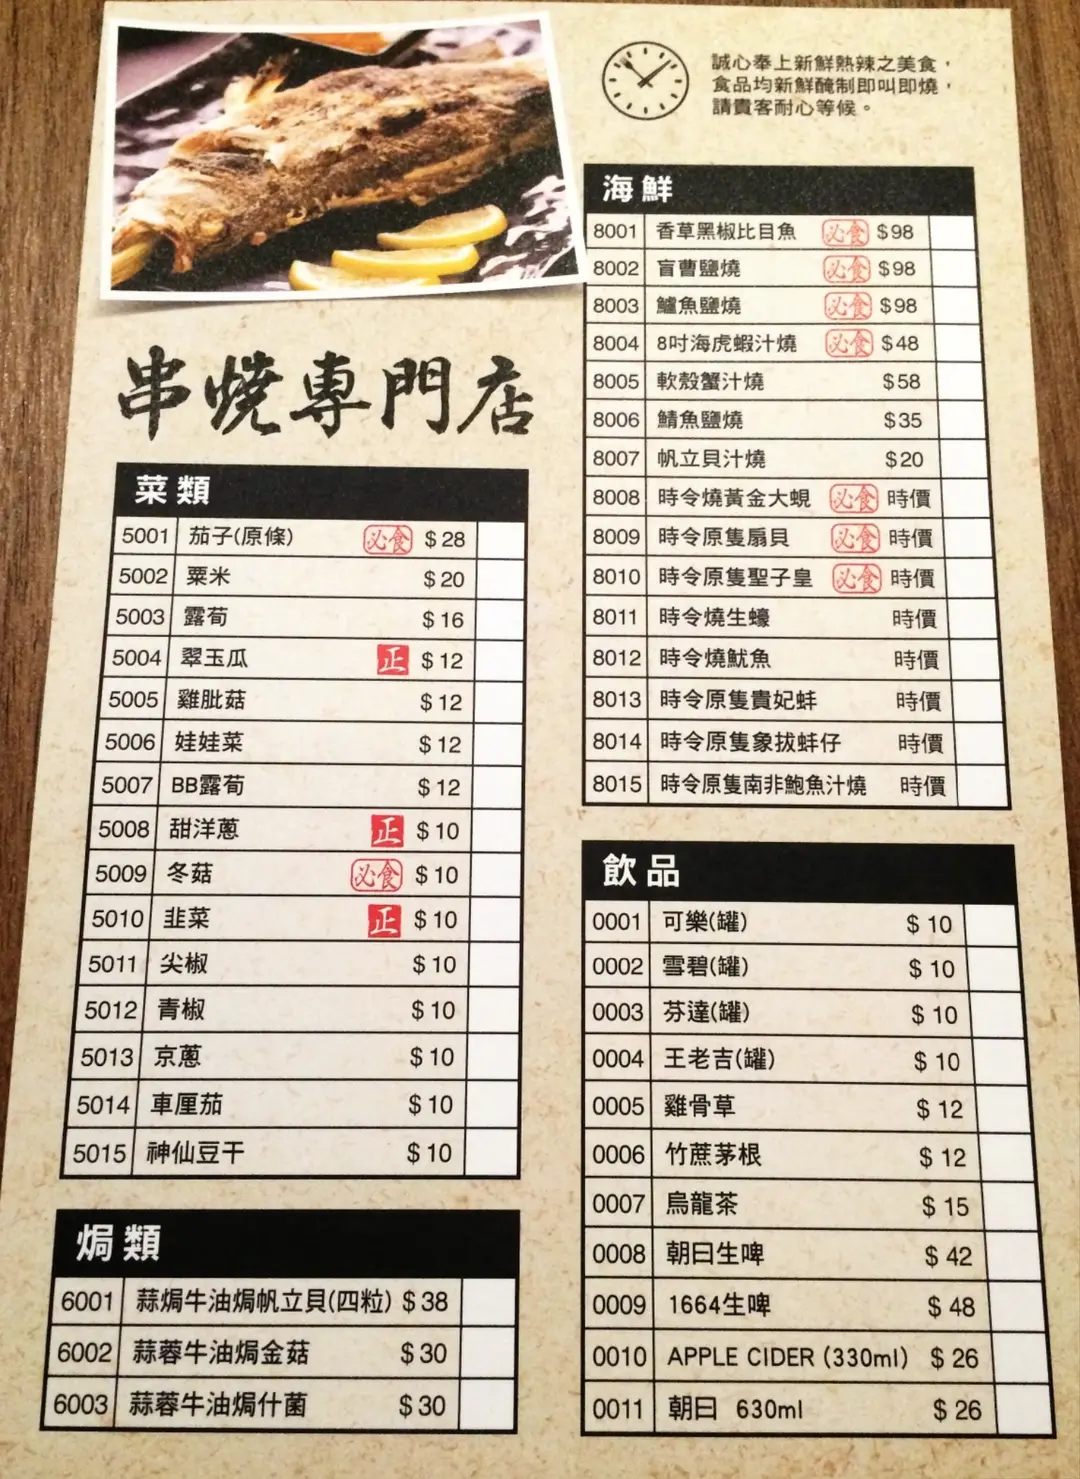 誠心奉上新鮮熱辣之美食，
食品均新鮮醃制即叫即燒，
請貴客耐心等候。
串燒專門店
菜類
5001 茄子(原條) 必食 $28
5002 粟米 $20
5003 露荀 $16
5004 翠玉瓜 正 $12
5005 雞肶菇 $12
5006 娃娃菜 $12
5007 BB露荀 $12
5008 甜洋蔥 正 $10
5009 冬菇 必食 $10
5010 韭菜 正 $10
5011 尖椒 $10
5012 青椒 $10
5013 京蔥 $10
5014 車厘茄 $10
5015 神仙豆干 $10
焗類
6001 蒜焗牛油焗帆立貝(四粒) $38
6002 蒜蓉牛油焗金菇 $30
6003 蒜蓉牛油焗什菌 $30
海鮮
8001 香草黑椒比目魚 必食 $98
8002 盲曹鹽燒 必食 $98
8003 鱸魚鹽燒 必食 $98
8004 8吋海虎蝦汁燒 必食 $48
8005 軟殼蟹汁燒 $58
8006 鯖魚鹽燒 $35
8007 帆立貝汁燒 $20
8008 時令燒黃金大蜆 必食 時價
8009 時令原隻扇貝 必食 時價
8010 時令原隻聖子皇 必食 時價
8011 時令燒生蠔 時價
8012 時令燒魷魚 時價
8013 時令原隻貴妃蚌 時價
8014 時令原隻象拔蚌仔 時價
8015 時令原隻南非鮑魚汁燒 時價
飲品
0001 可樂(罐) $10
0002 雪碧(罐) $10
0003 芬達(罐) $10
0004 王老吉(罐) $10
0005 雞骨草 $12
0006 竹蔗茅根 $12
0007 烏龍茶 $15
0008 朝日生啤 $42
0009 1664生啤 $48
0010 APPLE CIDER (330ml) $26
0011 朝日 630ml $26